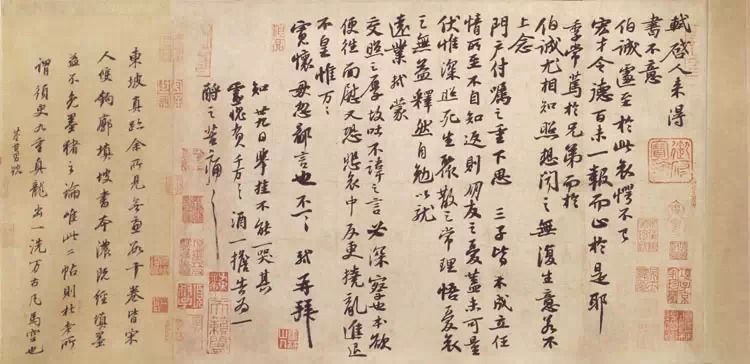 軾啓人來得
書不意
伯誠遽至於此哀愕不已
宏才令德百未一報而止於是耶
季常篤於兄弟而於
伯誠尤相知照想聞之無復生意若不
上念
門戶付囑之重下思三子皆未成立任
情所至不自知返則朋友之憂蓋未可量
伏惟深照死生聚散之常理悟憂哀
之無益釋然自勉以就
遠業軾蒙
交照之厚故吐不諱之言必深察也本欲
便往面慰又恐悲哀中反更撓亂進退
不皇惟万万
寬懷毋忽鄙言也不一一軾再拜
知廿九日舉掛不能一哭其
靈愧負千万千万酒一擔告為一
酹之苦痛苦痛
東坡真跡余所見無慮數十卷皆宋
人雙鉤廓填坡書本濃既經填墨
益不免墨豬之論唯此二帖則杜老所
謂須臾九重真龍出一洗万古凡馬空也
董其昌題